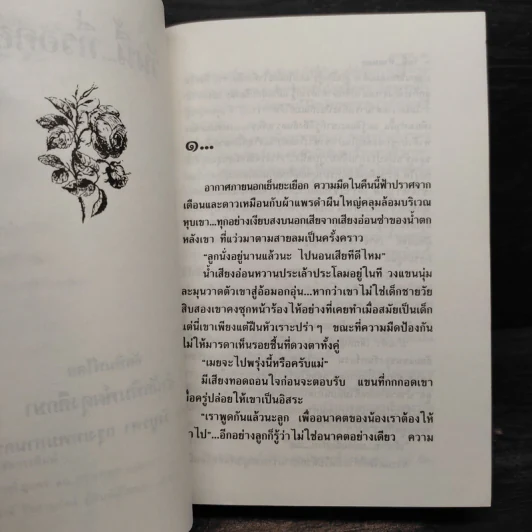 ๑...
อากาศภายนอกเย็นยะเยือก ความมืดในคืนนี้ฟ้าปราศจาก
เดือนและดาวเหมือนกับผ้าแพรดำผืนใหญ่คลุมล้อมบริเวณ
หุบเขา...ทุกอย่างเงียบสงบนอกเสียจากเสียงอ่อนซ่าของน้ำตก
หลังเขา ที่แว่วมาตามสายลมเป็นครั้งคราว
“ลูกนั่งอยู่นานแล้วนะ ไปนอนเสียทีดีไหม”
น้ำเสียงอ่อนหวานประเล้าประโลมอยู่ในที วงแขนนุ่ม
ละมุนวาดตัวเขาสู่อ้อมอกอุ่น...หากว่าเขาไม่ใช่เด็กชายวัย
สิบสองเขาคงซุกหน้าร้องไห้อย่างที่เคยทำเมื่อสมัยเป็นเด็ก
แต่นี่เขาเพียงแต่ฝืนหัวเราะปร่า ๆ ขณะที่ความมืดป้องกัน
ไม่ให้มารดาเห็นรอยชื้นที่ดวงตาทั้งคู่
“เมยจะไปพรุ่งนี้หรือครับแม่”
มีเสียงทอดถอนใจก่อนจะตอบรับ แขนที่กกกอดเขา
เมื่อครู่ปล่อยให้เขาเป็นอิสระ
“เราพูดกันแล้วนะลูก เพื่ออนาคตของน้องเราต้องให้
เขาไป”...อีกอย่างลูกก็รู้ว่าไม่ใช่อนาคตอย่างเดียว ความ